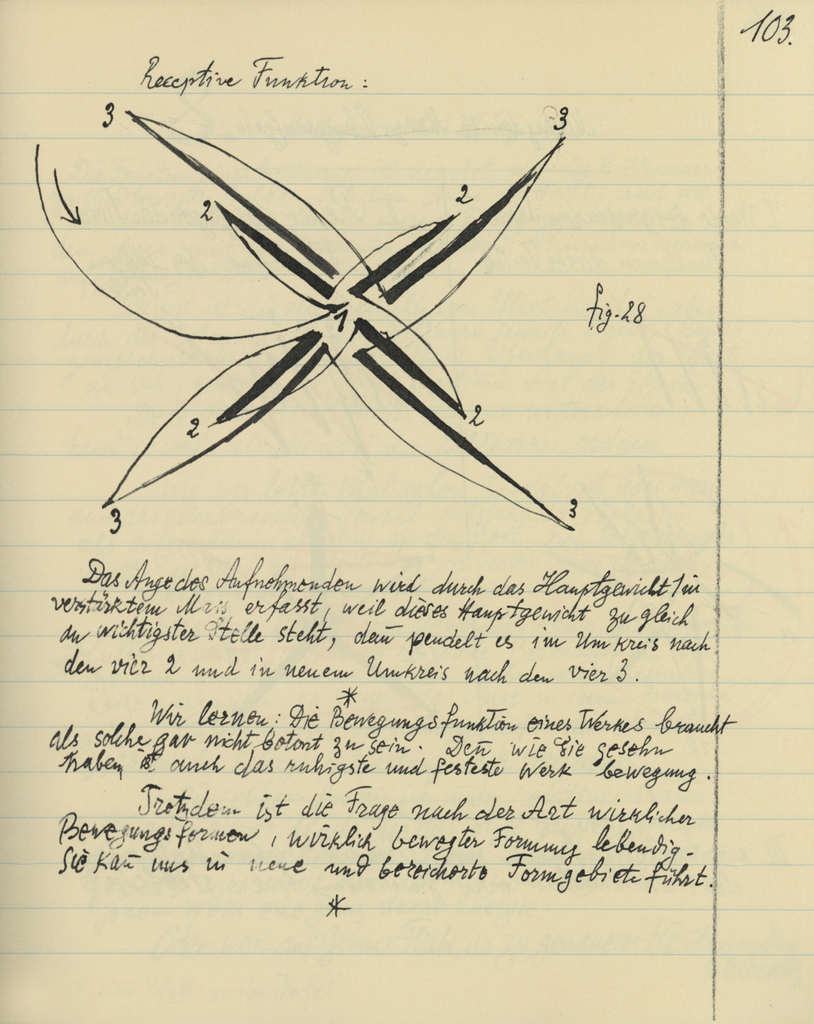 103.
Receptive Funktion:
3
3
2
2
1
fig. 28
2
2
3
3
Das Auge des Aufnehmenden wird durch das Hauptgewicht 1 in
verstärktem Mass erfasst, weil dieses Hauptgewicht zu gleich
an wichtigster Stelle steht, dan̄ pendelt es im Umkreis nach
den vier 2 und in neuem Umkreis nach den vier 3.
*
Wir lernen: Die Bewegungsfunktion eines Werkes braucht
als solche gar nicht betont zu sein. Den̄ wie Sie gesehn
haben, ist auch das ruhigste und festeste Werk bewegung.
Trotzdem ist die Frage nach der Art wirklicher
Bewegungsformen, wirklich bewegter Formung lebendig.
Sie kan̄ uns in neue und bereicherte Formgebiete führt.
*